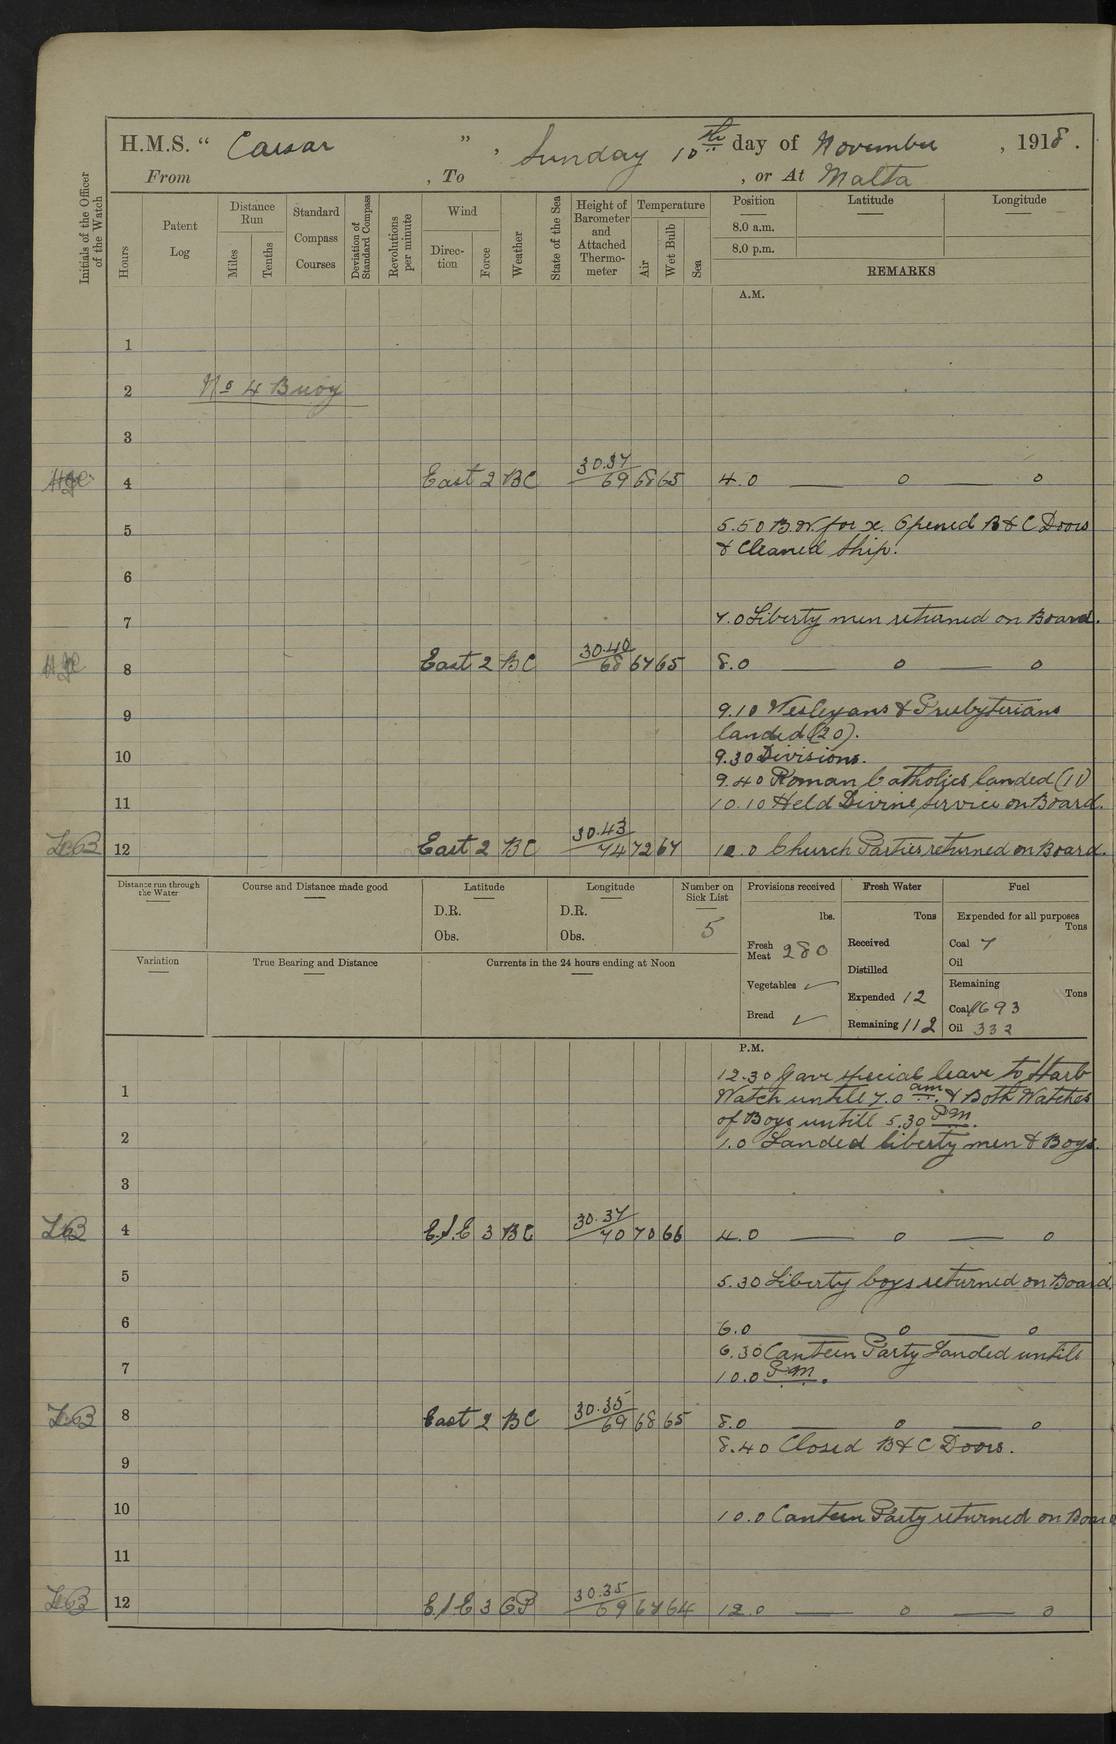 H.M.S. " Caesar ", Sunday 10th day of November, 1918.
From , To , or At Malta
Initials of the Officer of the Watch
Hours
Patent Log
Distance Run
Miles
Tenths
Standard Compass Courses
Deviation of Standard Compass
Revolutions per minute
Wind
Direction
Force
Weather
State of the Sea
Height of Barometer and Attached Thermometer
Temperature
Air
Wet Bulb
Sea
Position Latitude Longitude
8.0 a.m.
8.0 p.m.
REMARKS
A.M.
1
2 No 4 Buoy
3
4 East 2 BC 30.37 69 68 65 4.0 — o — o
5 5.50 B.W. for x. Opened B & C Doors
& Cleaned Ship.
6
7 7.0 Liberty men returned on Board.
8 East 2 BC 30.40 68 67 65 8.0 — o — o
9 9.10 Wesleyans & Presbyterians
landed (20).
10 9.30 Divisions.
9.40 Roman Catholics landed (11)
11 10.10 Held Divine service on Board.
12 East 2 BC 30.43 74 72 67 12.0 Church Parties returned on Board.
Distance run through the Water
Course and Distance made good
Latitude
D.R.
Obs.
Longitude
D.R.
Obs.
Number on Sick List
5
Provisions received
lbs.
Fresh Meat 280
Vegetables ✓
Bread ✓
Fresh Water
Tons
Received
Distilled
Expended 12
Remaining 112
Fuel
Expended for all purposes
Tons
Coal 7
Oil
Remaining
Tons
Coal 1693
Oil 332
Variation
True Bearing and Distance
Currents in the 24 hours ending at Noon
P.M.
12.30 Gave special leave to Starb
1 Watch untill 7.0 am. & Both Watches
of Boys untill 5.30 PM.
2 1.0 Landed liberty men & Boys.
3
4 E.S.E 3 BC 30.37 70 70 66 4.0 — o — o
5 5.30 Liberty boys returned on Board.
6 6.0 — o — o
6.30 Canteen Party Landed untill
7 10.0 PM.
8 East 2 BC 30.35 69 68 65 8.0 — o — o
8.40 Closed B & C Doors.
9
10 10.0 Canteen Party returned on Board
11
12 E/S E 3 CP 30.35 69 67 64 12.0 — o — o